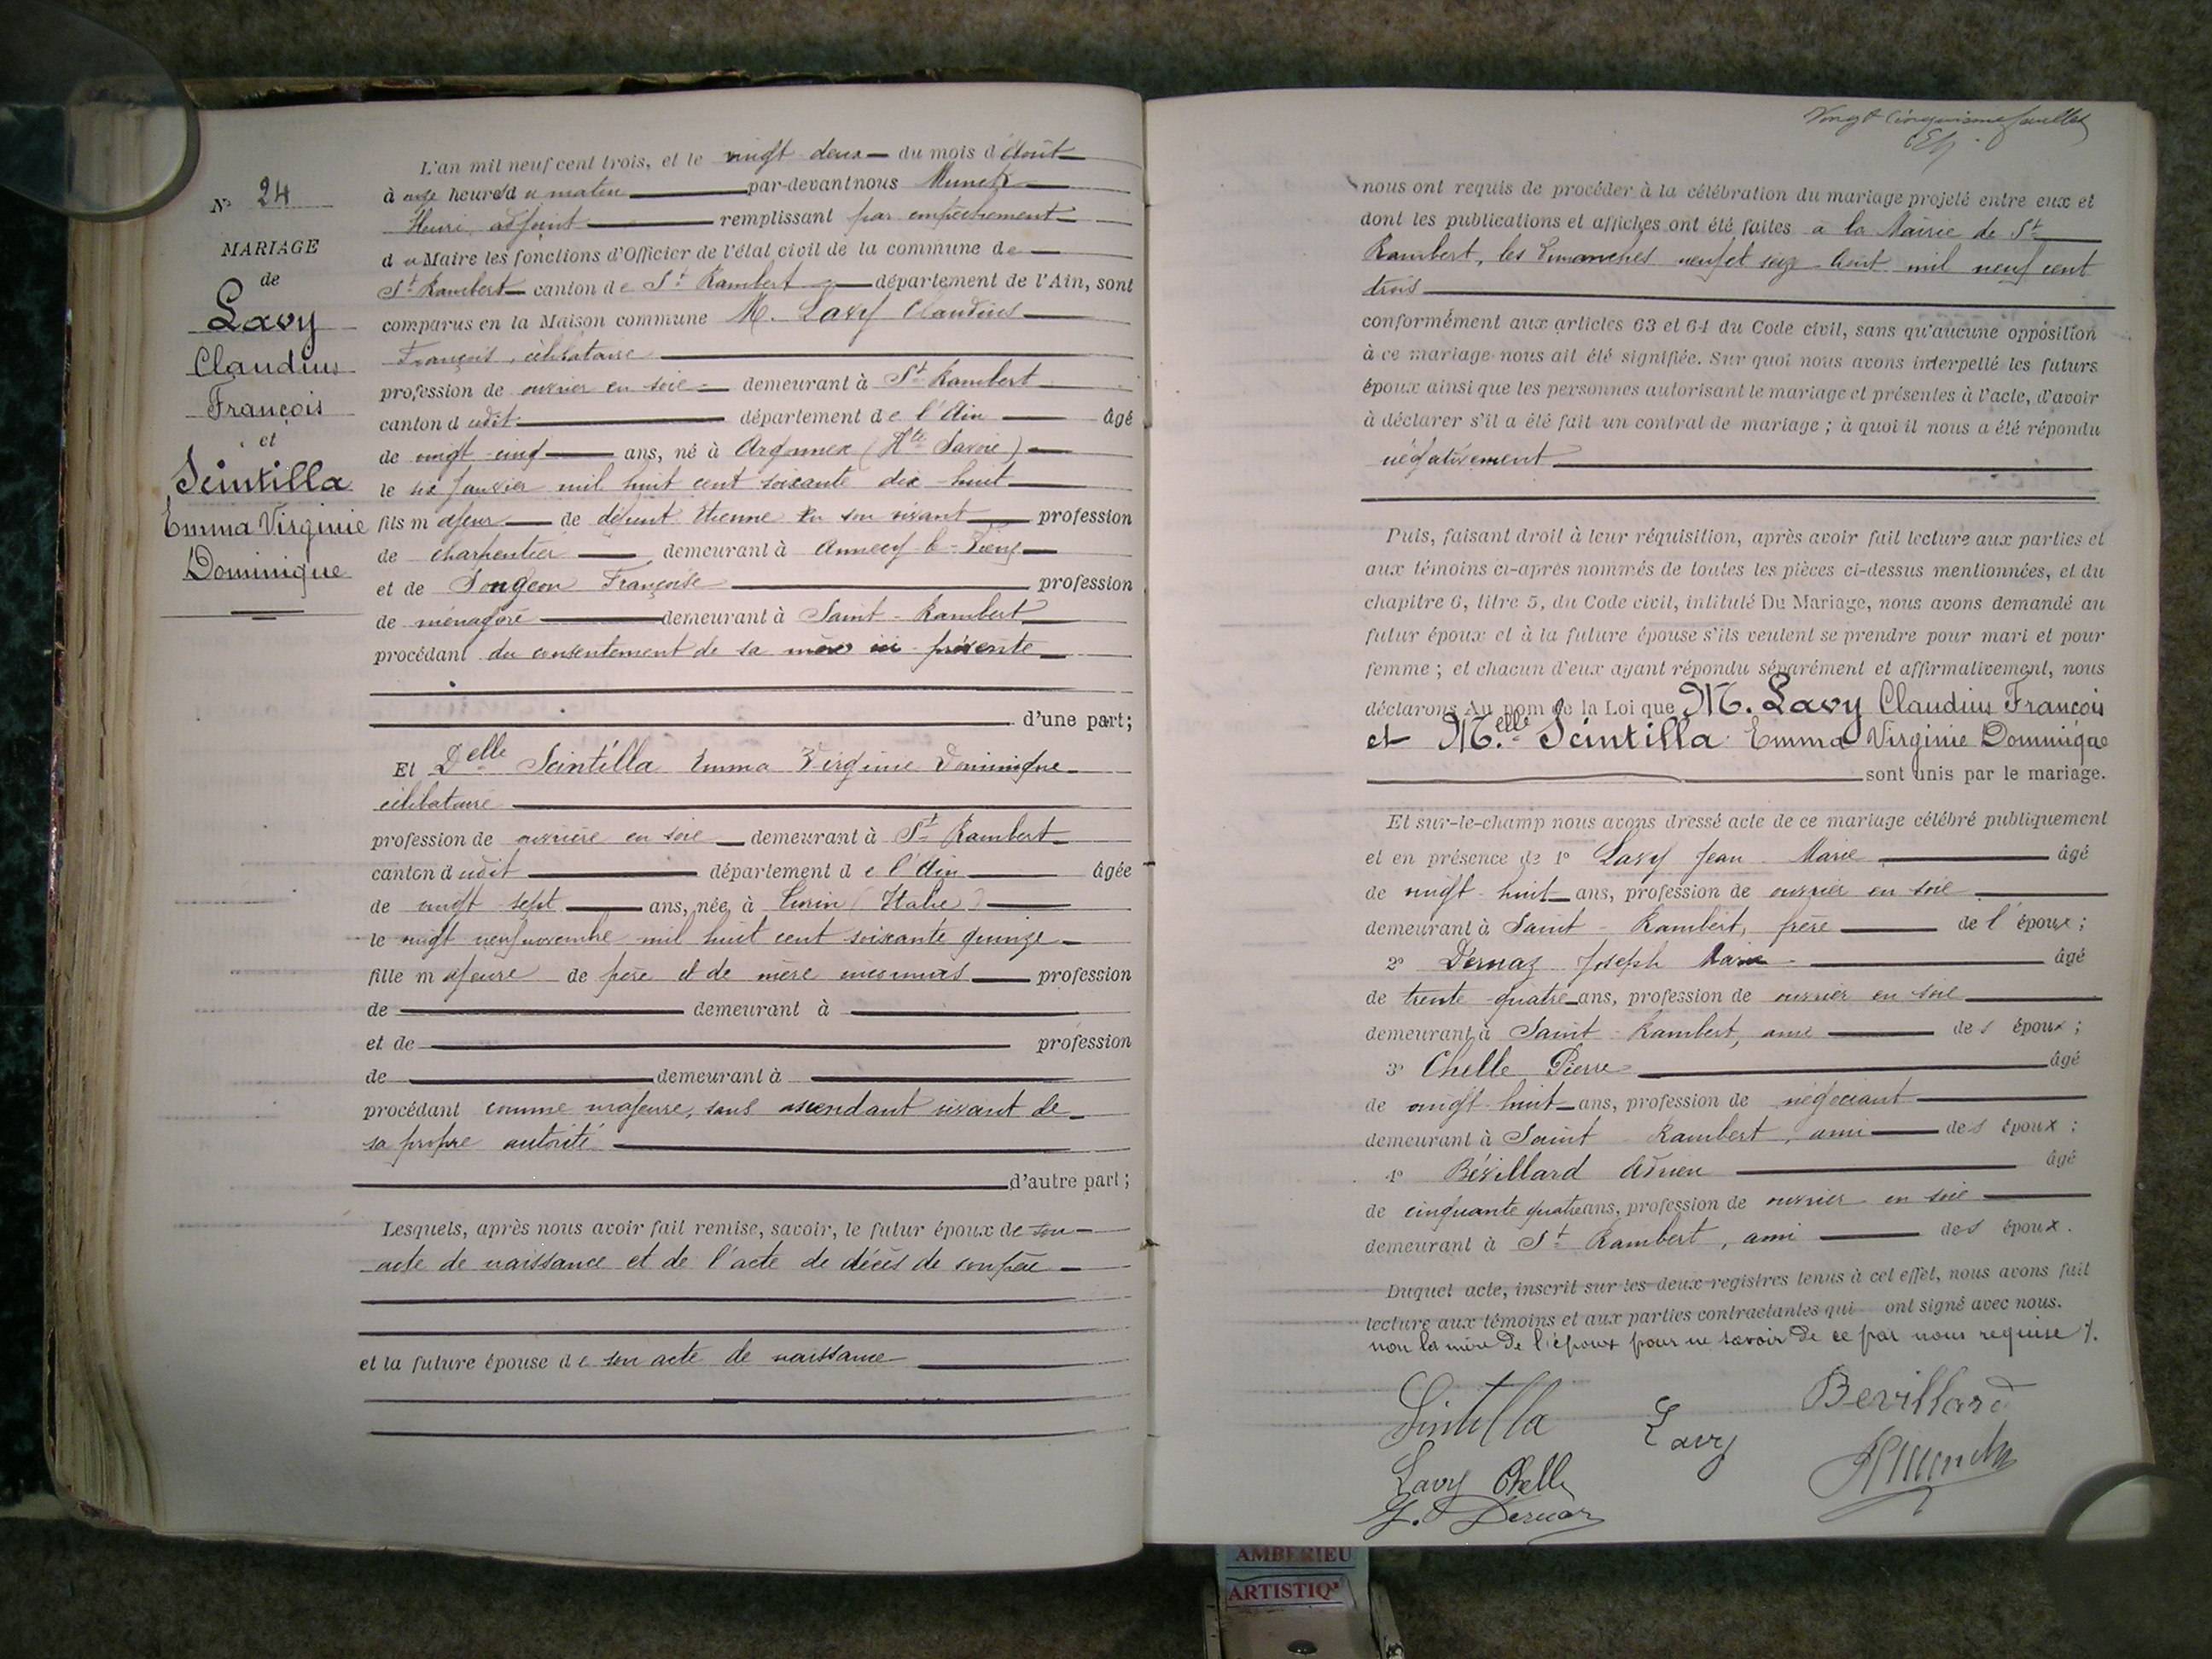 N° 24
MARIAGE
de
Lavy
Claudius
François
et
Scintilla
Emma Virginie
Dominique
L'an mil neuf cent trois, et le vingt deux du mois d'Août
à onze heures du matin par-devant nous Munch
Henri, adjoint remplissant par empêchement
du Maire les fonctions d'Officier de l'état civil de la commune de
St Rambert canton de St Rambert département de l'Ain, sont
comparus en la Maison commune M. Lavy Claudius
François, célibataire
profession de ouvrier en soie demeurant à St Rambert
canton dudit département de l'Ain âgé
de vingt cinq ans, né à Argonnex (Hte Savoie)
le six Janvier mil huit cent soixante dix-huit
fils majeur de défunt Etienne en son vivant profession
de charpentier demeurant à Annecy-le-Vieux
et de Songeon Françoise profession
de ménagère demeurant à Saint-Rambert
procédant du consentement de sa mère ici présente
d'une part;
Et Delle Scintilla Emma Virginie Dominique
célibataire
profession de ouvrière en soie demeurant à St Rambert
canton dudit département de l'Ain âgée
de vingt sept ans, née à Turin (Italie)
le vingt neuf novembre mil huit cent soixante quinze
fille majeure de père et de mère inconnus profession
de demeurant à
et de profession
de demeurant à
procédant comme majeure, sans ascendant vivant de
sa propre autorité
d'autre part;
Lesquels, après nous avoir fait remise, savoir, le futur époux de son
acte de naissance et de l'acte de décès de son père
et la future épouse de son acte de naissance
Vingt Cinquième feuillet
nous ont requis de procéder à la célébration du mariage projeté entre eux et
dont les publications et affiches ont été faites à la Mairie de St
Rambert, les Dimanches neuf et seize Août mil neuf cent
trois
conformément aux articles 63 et 64 du Code civil, sans qu'aucune opposition
à ce mariage nous ait été signifiée. Sur quoi nous avons interpellé les futurs
époux ainsi que les personnes autorisant le mariage et présentes à l'acte, d'avoir
à déclarer s'il a été fait un contrat de mariage; à quoi il nous a été répondu
négativement
Puis, faisant droit à leur réquisition, après avoir fait lecture aux parties et
aux témoins ci-après nommés de toutes les pièces ci-dessus mentionnées, et du
chapitre 6, titre 5, du Code civil, intitulé Du Mariage, nous avons demandé au
futur époux et à la future épouse s'ils veulent se prendre pour mari et pour
femme; et chacun d'eux ayant répondu séparément et affirmativement, nous
déclarons Au nom de la Loi que M. Lavy Claudius François
et Melle Scintilla Emma Virginie Dominique
sont unis par le mariage.
Et sur-le-champ nous avons dressé acte de ce mariage célébré publiquement
et en présence de 1° Lavy Jean Marie âgé
de vingt-huit ans, profession de ouvrier en soie
demeurant à Saint-Rambert, frère de l'époux;
2° Dernaz Joseph Marie âgé
de trente-quatre ans, profession de ouvrier en soie
demeurant à Saint-Rambert, ami des époux;
3° Chelle Pierre âgé
de vingt-huit ans, profession de négociant
demeurant à Saint Rambert, ami des époux;
4° Bévillard Adrien âgé
de cinquante quatre ans, profession de ouvrier en soie
demeurant à St Rambert, ami des époux.
Duquel acte, inscrit sur les deux registres tenus à cet effet, nous avons fait
lecture aux témoins et aux parties contractantes qui ont signé avec nous.
non la mère de l'époux pour ne savoir de ce par nous requise
Sintilla Lavy Bevillard
Lavy Chelle HMunch
J. Dernaz
AMBERIEU
ARTISTIQ